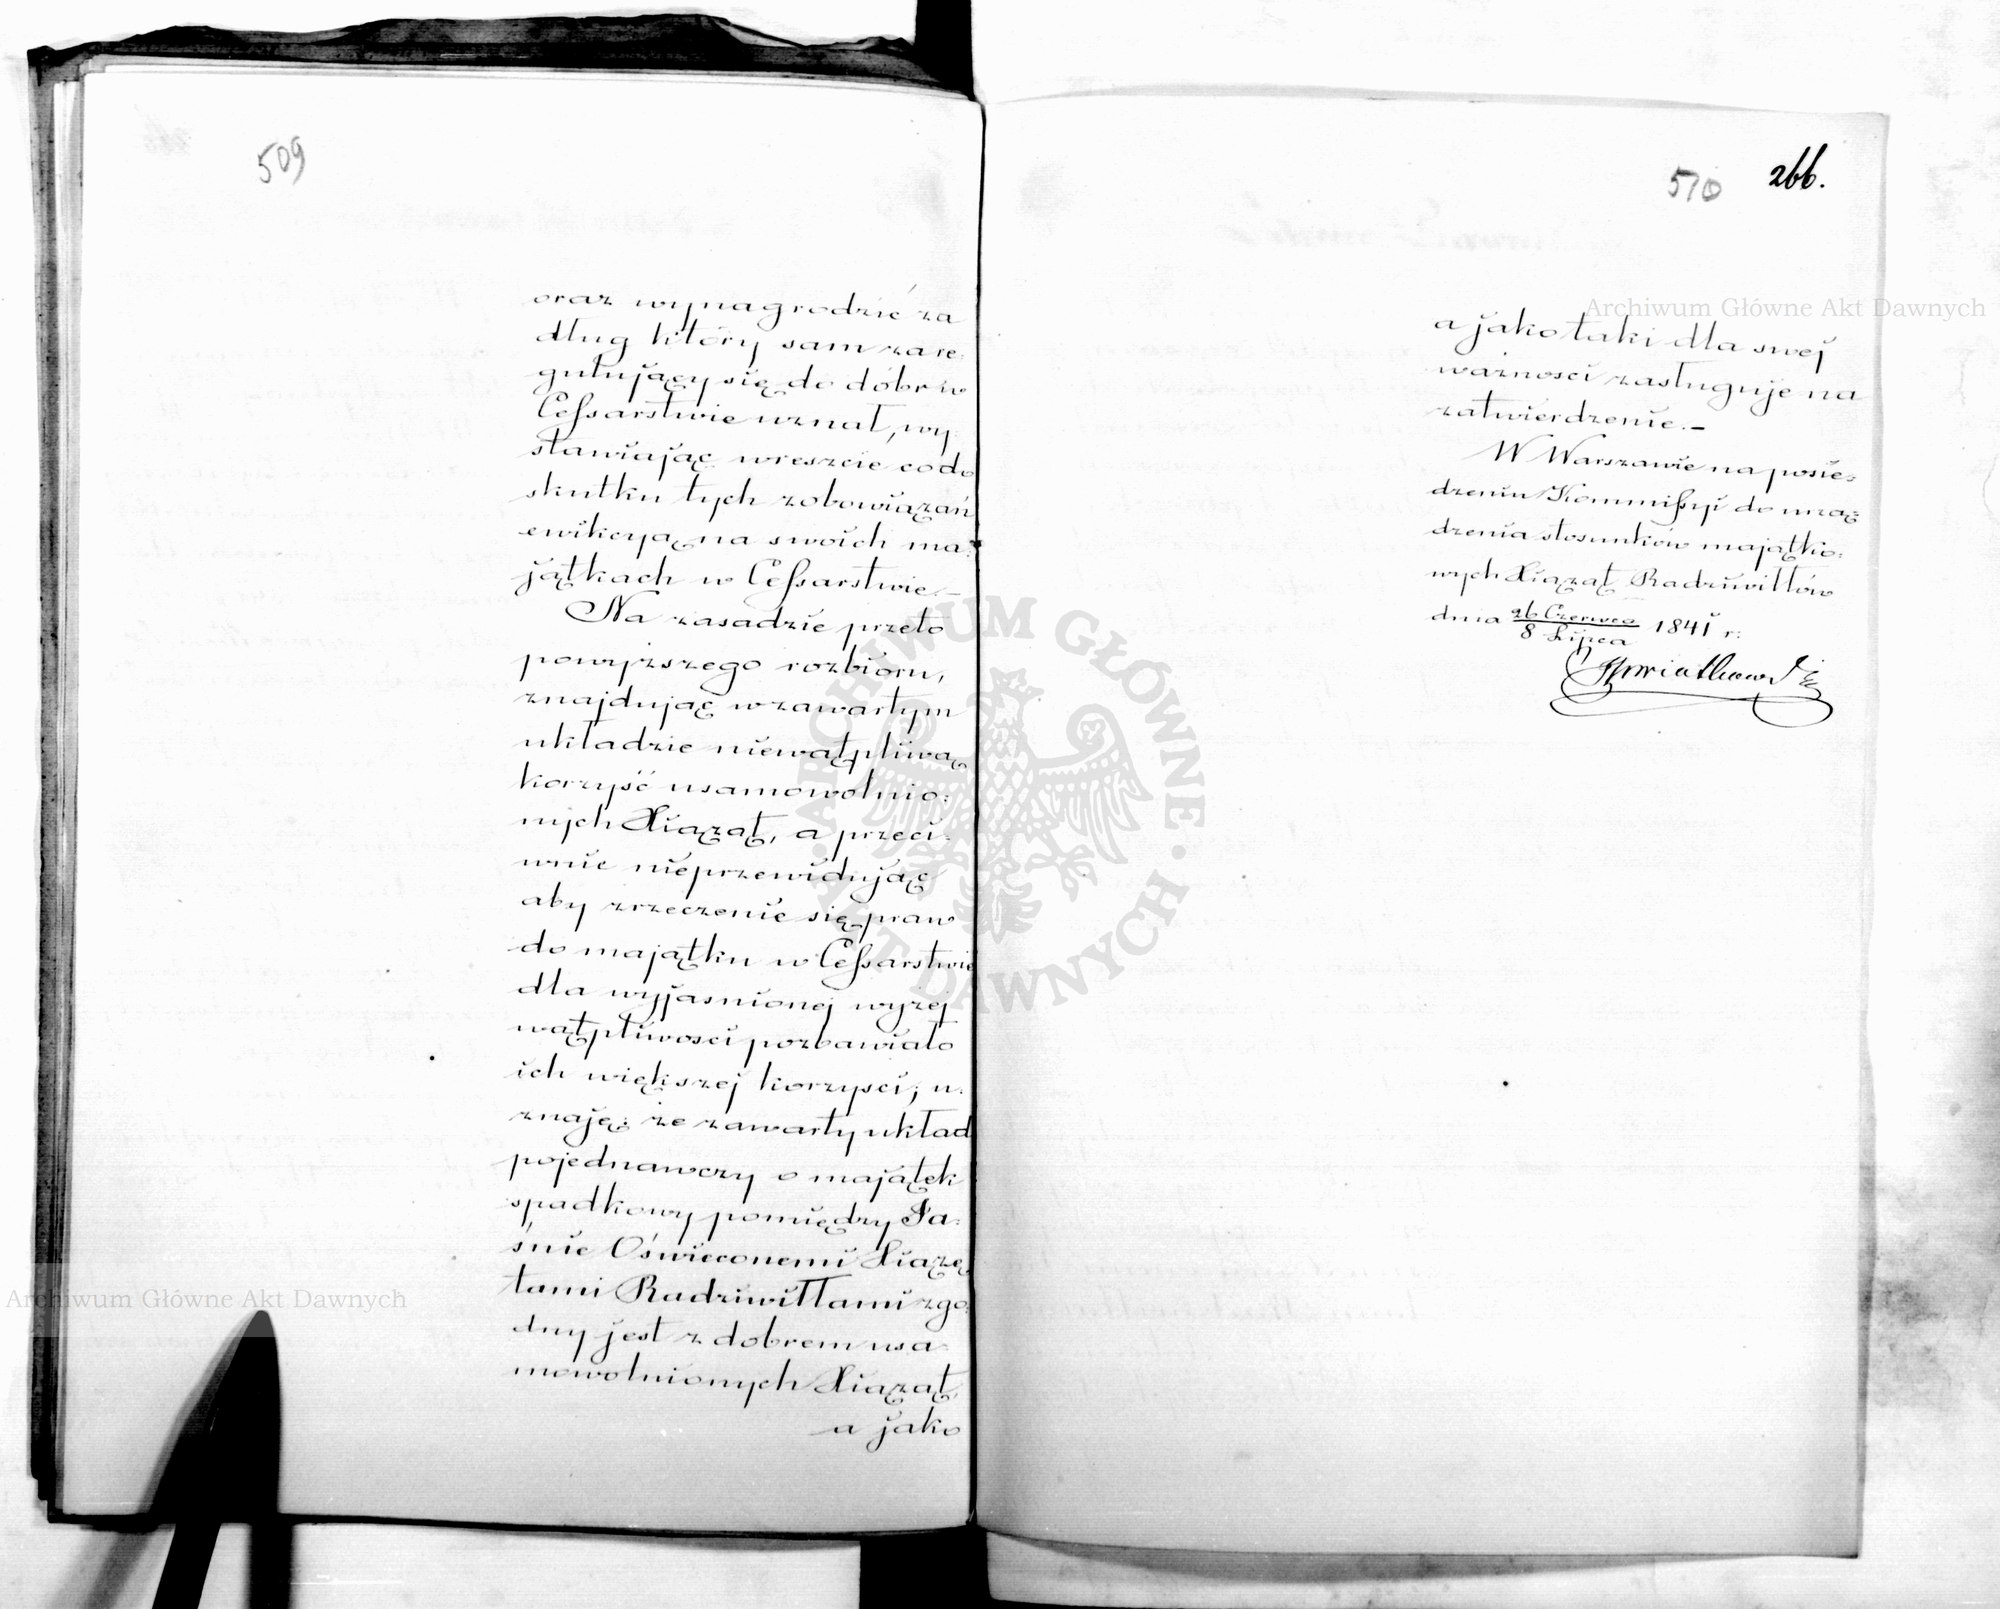 509
oraz wynagrodzić za
dług który sam zare:
gulujący się do dóbr w
Cessarstwie uznał, wy:
stawiając wreszcie co do
skutku tych zobowiązań
ewikcyą na swoich ma:
jątkach w Cessarstwie.–
Na zasadzie przeto
powyższego rozbioru,
znajdując w zawartym
układzie niewątpliwą
korzyść usamowolnio:
nych Xiążąt, a przeci:
wnie nieprzewidując
aby zrzeczenie się praw
do majątku w Cessarstwie
dla wyjasnionej wyżej
wątpliwosci pozbawiało
ich większej korzysci; u:
znaję: że zawarty układ
pojednawczy o majątek
spadkowy pomiędzy Ja:
śnie Oświeconemi Xiążę
tami Radziwiłłami zgo:
dny jest z dobrem usa:
mowolnionych Xiążąt,
a jako
510 266.
a jako taki dla swej
ważnosci zasługuje na
zatwierdzenie.–
W Warszawie na posie:
dzeniu Kommissyi do urzą:
dzenia stosunków majątko:
wych Xiążąt Radziwiłłów
dnia 26 Czerwca / 8 Lipca 1841 r:
Kwiatkowski
Archiwum Główne Akt Dawnych
Archiwum Główne Akt Dawnych
ARCHIWUM GŁÓWNE · AKT DAWNYCH ·